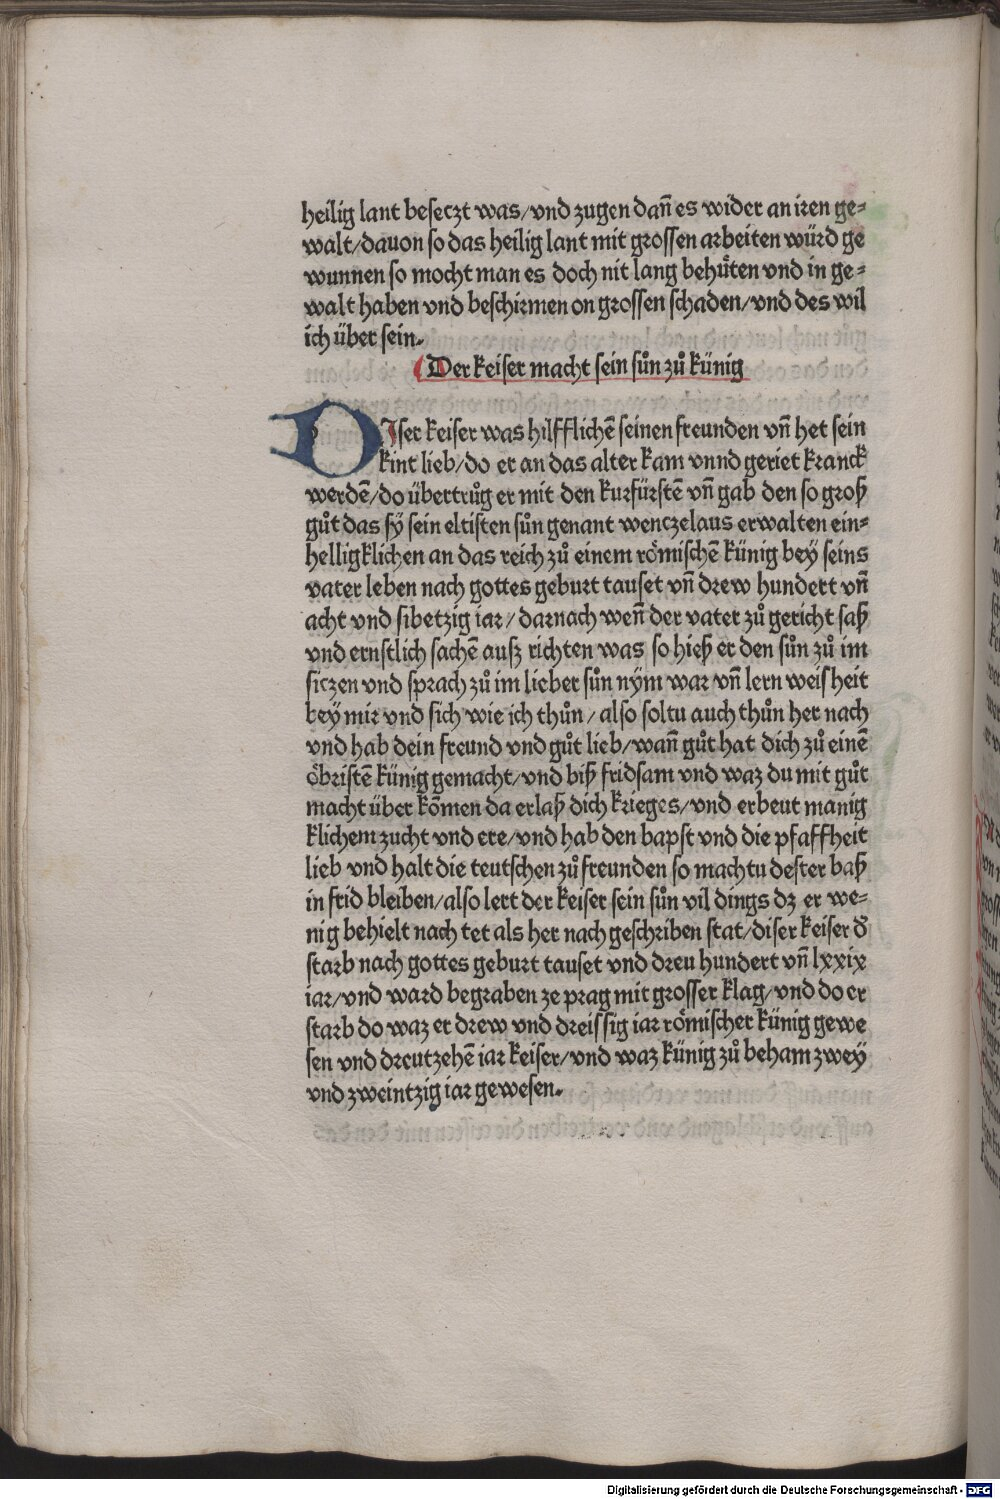 heilig lant beseczt was/vnd zugen dañ es wider an iren ge⸗
walt/dauon so das heilig lant mit grossen arbeiten würd ge
wunnen so mocht man es doch nit lang behuͤten vnd in ge⸗
walt haben vnd beschirmen on grossen schaden/vnd des wil
ich über sein.
Der keiser macht sein suͦn zuͦ künig
DIser keiser was hilfflichē seinen freunden vñ het sein
kint lieb/do er an das alter kam vnnd geriet kranck
werdē/do übertruͦg er mit den kurfürstē vñ gab den so groß
guͦt das sÿ sein eltisten suͦn genant wenczelaus erwalten ein⸗
helligklichen an das reich zuͦ einem roͤmischē künig beÿ seins
vater leben nach gottes geburt tauset vñ drew hundert vñ
acht vnd sibetzig iar/darnach weñ der vater zuͦ gericht saß
vnd ernstlich sachē ausz richten was so hieß er den suͦn zuͦ im
siczen vnd sprach zuͦ im lieber suͦn nÿm war vñ lern weisheit
beÿ mir vnd sich wie ich thuͦn/also soltu auch thuͦn her nach
vnd hab dein freund vnd guͦt lieb/wañ guͦt hat dich zuͦ einē
oͤbristē künig gemacht/vnd biß fridsam vnd waz du mit guͦt
macht über kōmen da erlaß dich krieges/vnd erbeut manig
klichem zucht vnd ere/vnd hab den bapst vnd die pfaffheit
lieb vnd halt die teutschen zuͦ freunden so machtu dester baß
in frid bleiben/also lert der keiser sein suͦn vil dings dz er we⸗
nig behielt nach tet als her nach geschriben stat/diser keiser d̕
starb nach gottes geburt tauset vnd dreu hundert vñ lxxix
iar/vnd ward begraben ze prag mit grosser klag/vnd do er
starb do waz er drew vnd dreissig iar roͤmischer künig gewe
sen vnd dreutzehē iar keiser/vnd waz künig zuͦ beham zweÿ
vnd zweintzig iar gewesen.
Digitalisierung gefördert durch die Deutsche Forschungsgemeinschaft - DFG